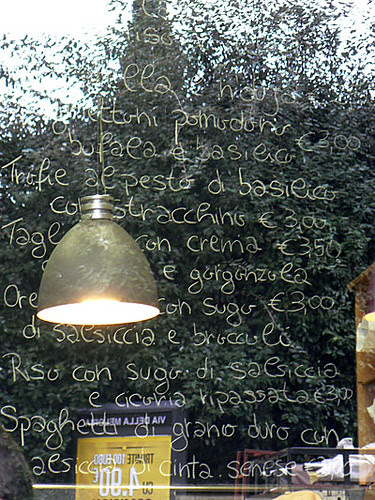 lla nduja
ttoni pomodoro
bufala e basilico €3,00
Trofie al pesto di basilico
con stracchino €3,00
Tagl con crema €3,50
e gorgonzola
Ore con sugo €3,00
di salsiccia e broccoli
Riso con sugo di salsiccia
e cicoria ripassata €3,00
Spaghetti grano duro con
salsiccia di cinta senese
VIA DELLA ME
TRAMITE 100 EURO
4.90